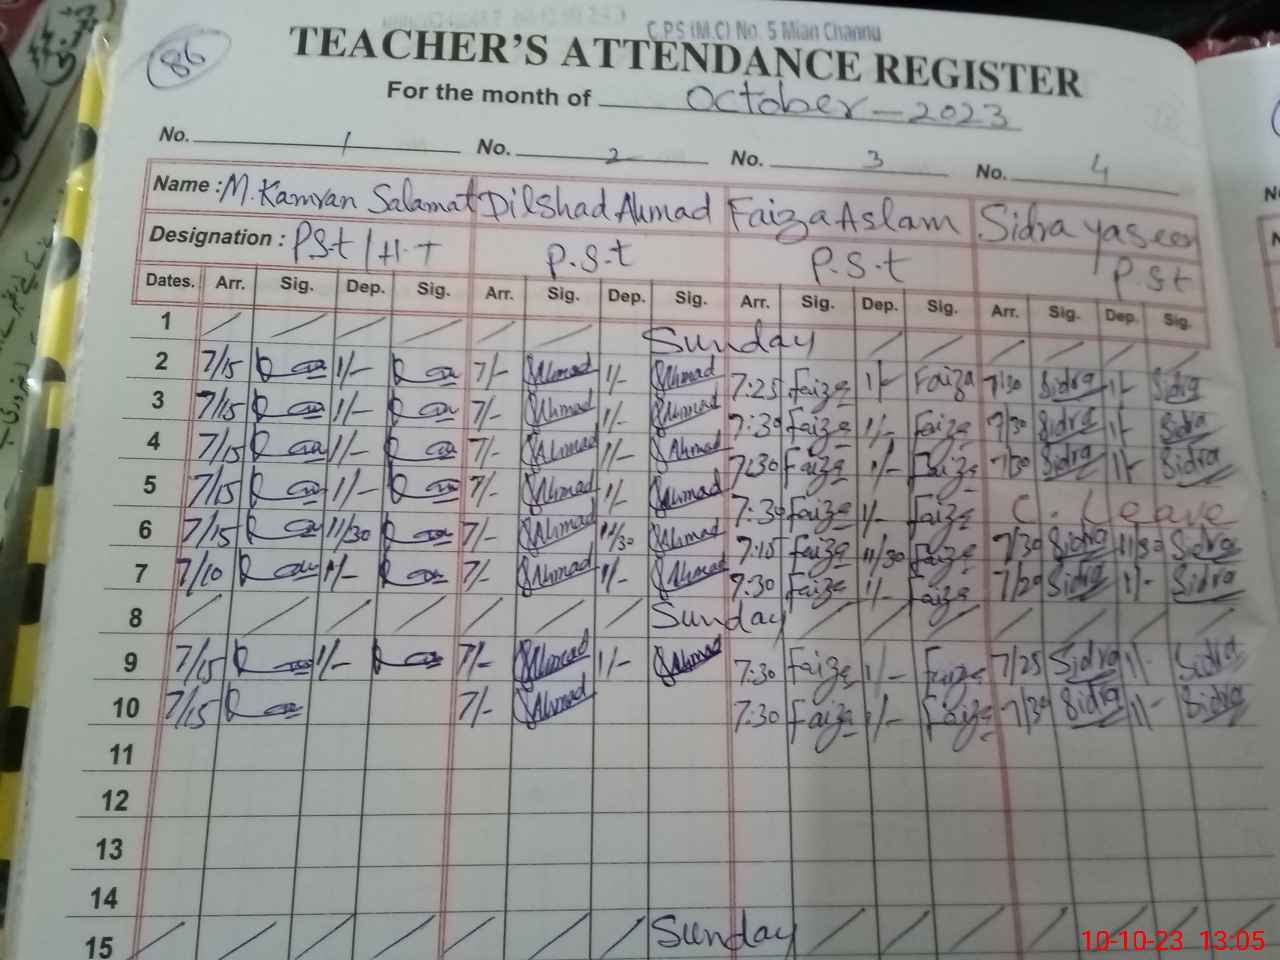 C.P.S (M.C) No. 5 Mian Channu
86
TEACHER'S ATTENDANCE REGISTER
For the month of October - 2023
No. 1 No. 2 No. 3 No. 4
Name : M. Kamran Salamat Dilshad Ahmad Faiza Aslam Sidra yaseen
Designation : PSt / H.T P.S.t P.S.t P.St
Dates. Arr. Sig. Dep. Sig. Arr. Sig. Dep. Sig. Arr. Sig. Dep. Sig. Arr. Sig. Dep. Sig.
1 Sunday
2 7/15 1/- 7/- Ahmad 1/- Ahmad 7:25 Faiza 1/- Faiza 7/30 Sidra 1/- Sidra
3 7/15 1/- 7/- Ahmad 1/- Ahmad 7:30 Faiza 1/- Faiza 7/30 Sidra 1/- Sidra
4 7/15 1/- 7/- Ahmad 1/- Ahmad 7:30 Faiza 1/- Faiza 7/30 Sidra 1/- Sidra
5 7/15 1/- 7/- Ahmad 1/- Ahmad 7:30 Faiza 1/- Faiza C. Leave
6 7/15 11/30 7/- Ahmad 11/30 Ahmad 7:15 Faiza 11/30 Faiza 7/30 Sidra 11/30 Sidra
7 7/10 1/- 7/- Ahmad 1/- Ahmad 7:30 Faiza 1/- Faiza 7/20 Sidra 1/- Sidra
8 Sunday
9 7/15 1/- 7/- Ahmad 1/- Ahmad 7:30 Faiza 1/- Faiza 7/25 Sidra 1/- Sidra
10 7/15 7/- Ahmad 7:30 Faiza 1/- Faiza 7/30 Sidra 1/- Sidra
11
12
13
14
15 Sunday
10-10-23 13:05